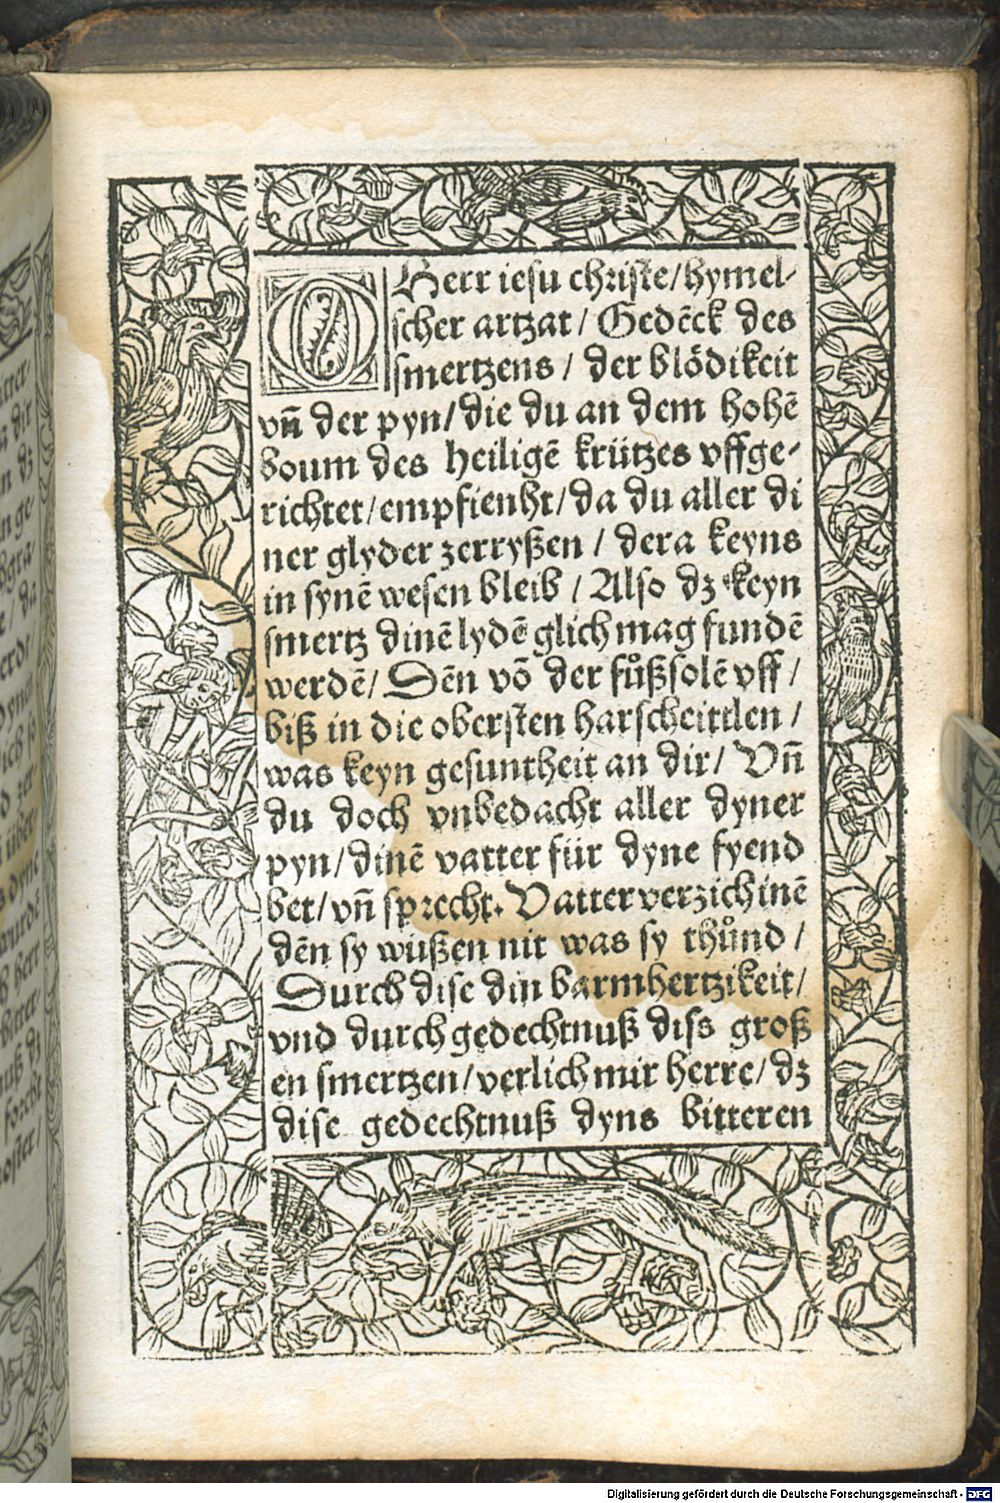 O Herr iesu christe/hymel-
scher artzat / Gedēck des
smertzens / der blödikeit
vn̄ der pyn/die du an dem hohē
boum des heiligē krützes vffge-
richtet/empfienht/da du aller di
ner glyder zerryßen / dera keyns
in synē wesen bleib / Also dz keyn
smertz dinē lydē glich mag fundē
werdē/ Dēn vō der fůßsolē vff /
biß in die obersten harscheittlen /
was keyn gesuntheit an dir/ Vn̄
du doch vnbedacht aller dyner
pyn/dinē vatter für dyne fyend
bet/vn̄ sprecht. Vatter verzich inē
dēn sy wußen nit was sy thůnd /
Durch dise din barmhertzikeit/
vnd durch gedechtnuß diss groß
en smertzen/verlich mir herre/dz
dise gedechtnuß dyns bitteren
Digitalisierung gefördert durch die Deutsche Forschungsgemeinschaft - DFG